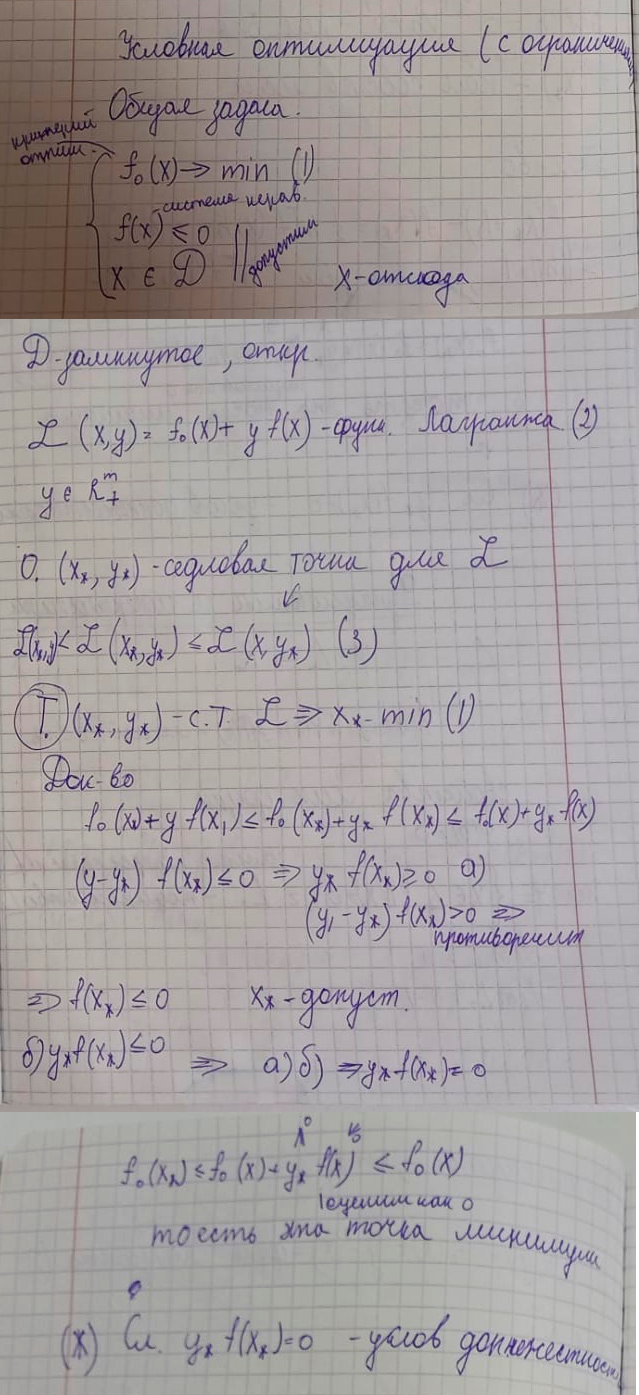 Условная оптимизация (с ограничениями
Общая задача.
критерий
оптим.
f₀(x) → min (1)
система нерав.
f(x) ≤ 0
x ∈ D
допустим
x-отсюда
D-замкнутое, откр.
L (x,y) = f₀(x) + y f(x) - функ. Лагранжа (2)
y ∈ R₊ᵐ
О. (x*, y*) - седловая точка для L
L(x*,y) ≤ L(x*,y*) ≤ L(x,y*) (3)
Т. (x*, y*) - с.т. L ⇒ x* - min (1)
Док-во
f₀(x*) + y f(x*) ≤ f₀(x*) + y* f(x*) ≤ f₀(x) + y* f(x)
(y-y*) f(x*) ≤ 0 ⇒ y* f(x*) ≥ 0 а)
(y₁ - y*) f(x*) > 0 ⇒
противоречит
⇒ f(x*) ≤ 0 x* - допуст.
б) y* f(x*) ≤ 0 ⇒ а) б) ⇒ y* f(x*) = 0
f₀(x*) ≤ f₀(x) + y* f(x) ≤ f₀(x)
оценим как 0
то есть эта точка минимума
(*) Сл. y* f(x*) = 0 - услов